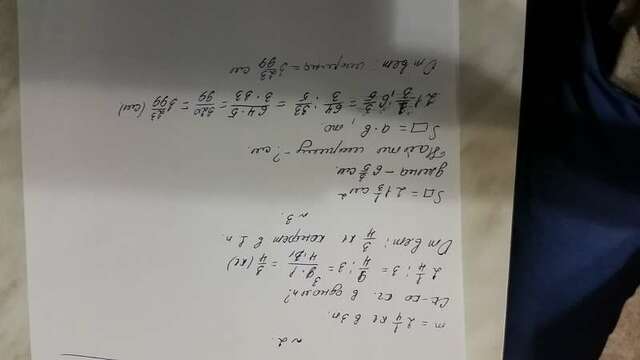 №2.
m = 2 1/4 кг в 3п.
Ск-ко кг. в одном п?
2 1/4 : 3 = 9/4 : 3 = 9·1/4·3 = 3/4 (кг)
Ответ: 3/4 кг конфет в 1 п.
№3.
S□ = 21 1/3 см²
длина – 6 3/5 см.
Найти ширину – ? см.
S□ = a·b, то
21 1/3 : 6 3/5 = 64/3 : 33/5 = 64·5/3·33 = 320/99 = 3 23/99 (см)
Ответ: ширина = 3 23/99 см